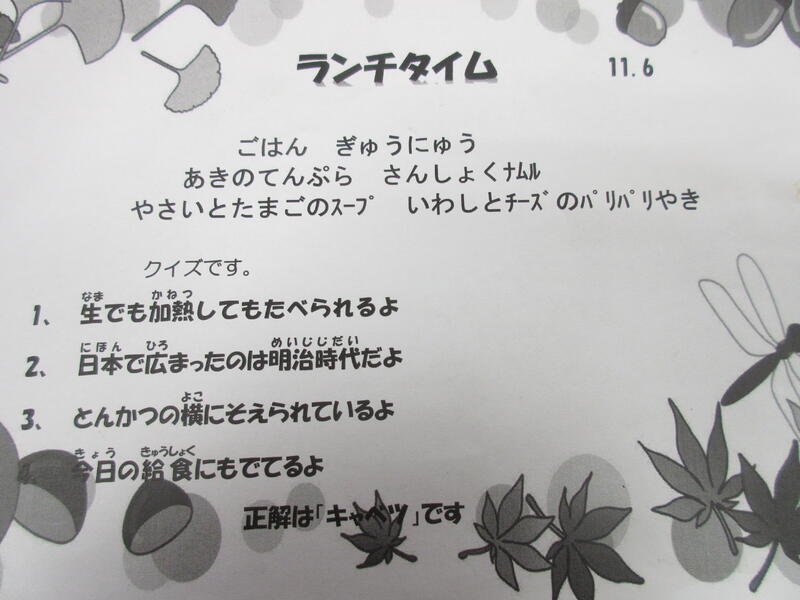 ランチタイム 11.6
ごはん ぎゅうにゅう
あきのてんぷら さんしょくﾅﾑﾙ
やさいとたまごのｽｰﾌﾟ いわしとﾁｰｽﾞのﾊﾟﾘﾊﾟﾘやき
クイズです。
1、 生でも加熱してもたべられるよ
2、 日本で広まったのは明治時代だよ
3、 とんかつの横にそえられているよ
4、 今日の給食にもでてるよ
正解は「キャベツ」です